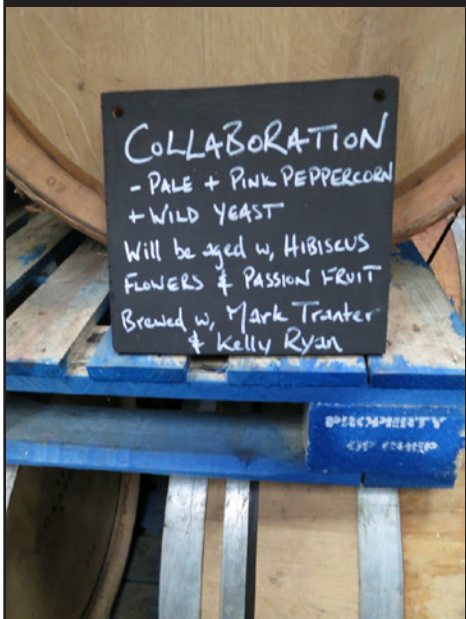 COLLABORATION
- PALE + PINK PEPPERCORN
+ WILD YEAST
Will be aged w, HIBISCUS
FLOWERS & PASSION FRUIT
Brewed w, Mark Tranter
& Kelly Ryan
07